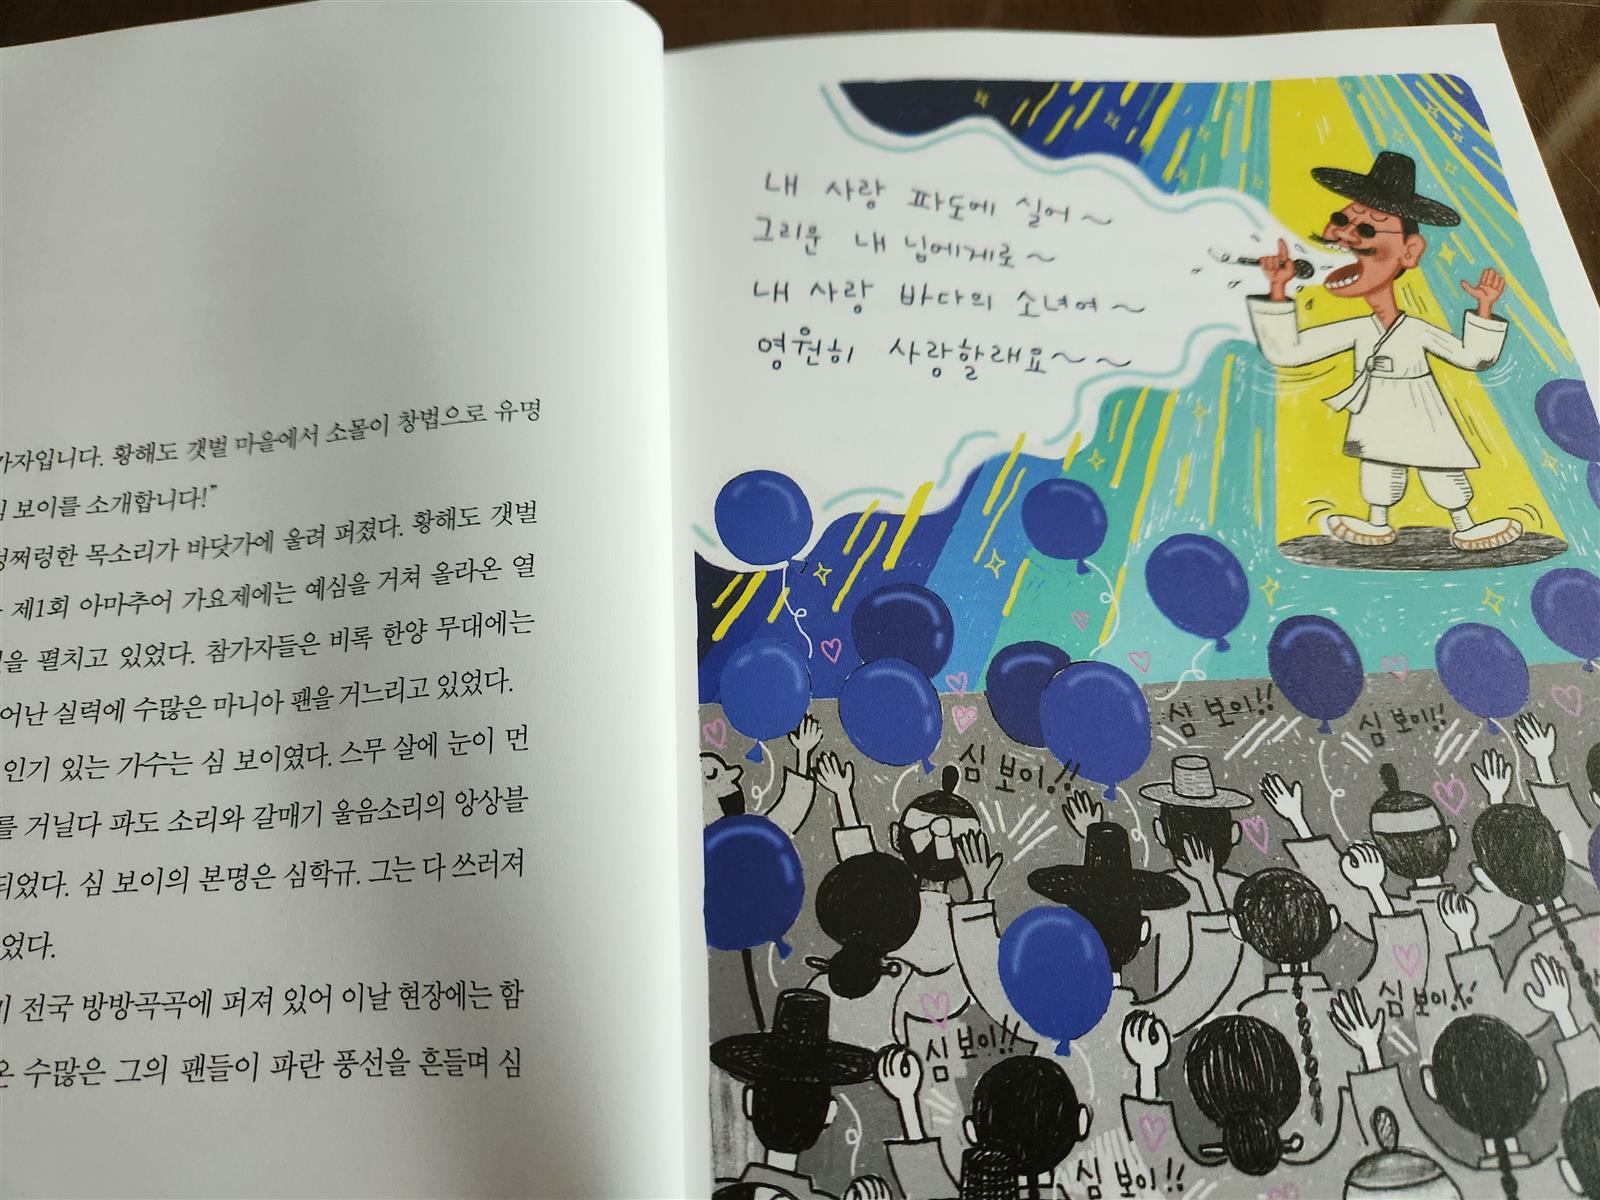 가자입니다. 황해도 갯벌 마을에서 소몰이 창법으로 유명
심 보이를 소개합니다!”
렁쩌렁한 목소리가 바닷가에 울려 퍼졌다. 황해도 갯벌
제1회 아마추어 가요제에는 예심을 거쳐 올라온 열
을 펼치고 있었다. 참가자들은 비록 한양 무대에는
어난 실력에 수많은 마니아 팬을 거느리고 있었다.
인기 있는 가수는 심 보이였다. 스무 살에 눈이 먼
를 거닐다 파도 소리와 갈매기 울음소리의 앙상블
되었다. 심 보이의 본명은 심학규. 그는 다 쓰러져
었다.
전국 방방곡곡에 퍼져 있어 이날 현장에는 함
온 수많은 그의 팬들이 파란 풍선을 흔들며 심
내 사랑 파도에 실어~
그리운 내 님에게로~
내 사랑 바다의 소녀여~
영원히 사랑할래요~~
심 보이!!
심 보이!!
심 보이!!
심 보이!!
심 보이!!
심 보이!!